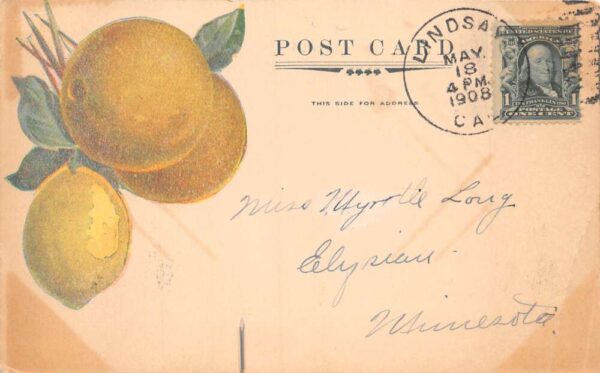 POST CARD
THIS SIDE FOR ADDRESS
LINDSA
MAY.
18
4 PM
1908
CA
UNITED STATES OF
AMERICA
1
FRANKLIN
POSTAGE
ONE CENT
Miss Myrtle Long
Elysian.
Minnesota.